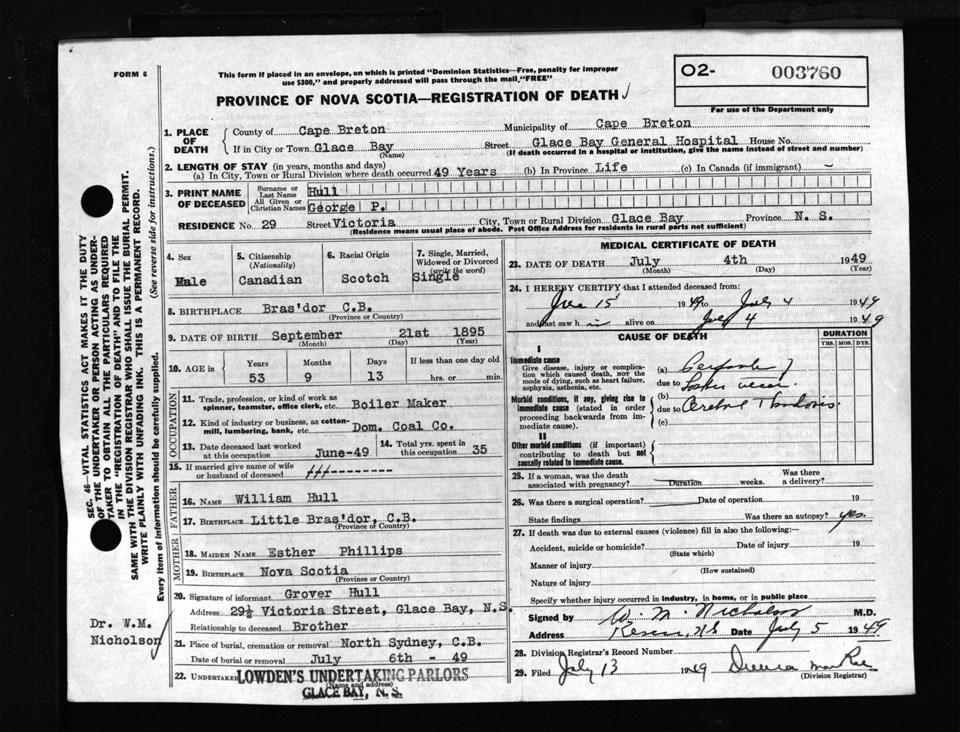 FORM 6
This form if placed in an envelope, on which is printed "Dominion Statistics—Free, penalty for improper
use $300," and properly addressed will pass through the mail, "FREE"
PROVINCE OF NOVA SCOTIA—REGISTRATION OF DEATH
O2- 003760
For use of the Department only
1. PLACE OF DEATH
County of Cape Breton Municipality of Cape Breton
If in City or Town Glace Bay Street Glace Bay General Hospital House No.
(Name) (If death occurred in a hospital or institution, give the name instead of street and number)
2. LENGTH OF STAY (in years, months and days)
(a) In City, Town or Rural Division where death occurred 49 Years (b) In Province Life (c) In Canada (if immigrant) —
3. PRINT NAME OF DECEASED
Surname or Last Name Hull
All Given or Christian Names George P.
RESIDENCE No. 29 Street Victoria City, Town or Rural Division Glace Bay Province N. S.
(Residence means usual place of abode. Post Office Address for residents in rural parts not sufficient)
4. Sex Male
5. Citizenship (Nationality) Canadian
6. Racial Origin Scotch
7. Single, Married, Widowed or Divorced (write the word) Single
8. BIRTHPLACE Bras'dor C.B.
(Province or Country)
9. DATE OF BIRTH September 21st 1895
(Month) (Day) (Year)
10. AGE in Years Months Days If less than one day old
53 9 13 hrs. or min.
OCCUPATION
11. Trade, profession, or kind of work as spinner, teamster, office clerk, etc. Boiler Maker
12. Kind of industry or business, as cotton-mill, lumbering, bank, etc. Dom. Coal Co.
13. Date deceased last worked at this occupation June-49
14. Total yrs. spent in this occupation 35
15. If married give name of wife or husband of deceased ---------
FATHER
16. NAME William Hull
17. BIRTHPLACE Little Bras'dor, C.B.
(Province or Country)
MOTHER
18. MAIDEN NAME Esther Phillips
19. BIRTHPLACE Nova Scotia
(Province or Country)
20. Signature of informant Grover Hull
Address 29½ Victoria Street, Glace Bay, N.S.
Relationship to deceased Brother
21. Place of burial, cremation or removal North Sydney, C.B.
Date of burial or removal July 6th - 49
22. UNDERTAKER LOWDEN'S UNDERTAKING PARLORS
(Name and address)
GLACE BAY, N. S.
MEDICAL CERTIFICATE OF DEATH
23. DATE OF DEATH July 4th 1949
(Month) (Day) (Year)
24. I HEREBY CERTIFY that I attended deceased from:
June 15 1949 to July 4 1949
and last saw h im alive on July 4 1949
CAUSE OF DEATH
DURATION
YRS. MOS. DYS.
I
Immediate cause
Give disease, injury or complication which caused death, not the mode of dying, such as heart failure, asphyxia, asthenia, etc.
(a)
due to
Morbid conditions, if any, giving rise to immediate cause (stated in order proceeding backwards from immediate cause).
(b)
due to Cerebral Thrombosis
(c)
II
Other morbid conditions (if important) contributing to death but not causally related to immediate cause.
25. If a woman, was the death associated with pregnancy? Duration weeks. Was there a delivery?
26. Was there a surgical operation? Date of operation 19
State findings Was there an autopsy? yes.
27. If death was due to external causes (violence) fill in also the following:—
Accident, suicide or homicide? Date of injury 19
(State which)
Manner of injury
(How sustained)
Nature of injury
Specify whether injury occurred in industry, in home, or in public place
Signed by W. M. Nicholson M.D.
Address Reserve, NS Date July 5 1949
28. Division Registrar's Record Number
29. Filed July 13 1949
(Division Registrar)
SEC. 46—VITAL STATISTICS ACT MAKES IT THE DUTY
OF THE UNDERTAKER OR PERSON ACTING AS UNDER-
TAKER TO OBTAIN ALL THE PARTICULARS REQUIRED
IN THE "REGISTRATION OF DEATH" AND TO FILE THE
SAME WITH THE DIVISION REGISTRAR WHO SHALL ISSUE THE BURIAL PERMIT.
WRITE PLAINLY WITH UNFADING INK. THIS IS A PERMANENT RECORD.
Every item of information should be carefully supplied. (See reverse side for instructions.)
Dr. W.M.
Nicholson